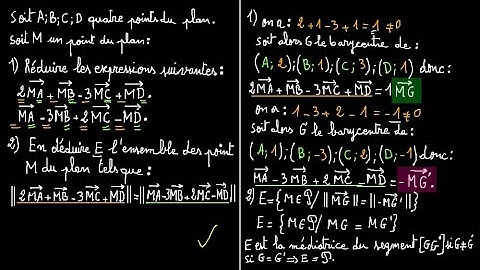 Soit A;B;C;D quatre points du plan.
Soit M un point du plan:
1) Réduire les expressions suivantes:
2MA + MB - 3MC + MD.
MA - 3MB + 2MC - MD.
2) En déduire E l'ensemble des point
M du plan tels que:
||2MA + MB - 3MC + MD|| = ||MA - 3MB + 2MC - MD||
1) on a: 2+1-3+1=1≠0
soit alors G le barycentre de:
(A;2);(B;1);(C;3);(D;1) donc:
2MA + MB - 3MC + MD = 1 MG
on a: 1-3+2-1=-1≠0
soit alors G' le barycentre de:
(A;1);(B;-3);(C;2);(D;-1) donc:
MA - 3MB + 2MC - MD = -MG'.
2) E={M∈P/ ||MG|| = ||-MG'||}
E={M∈P/ MG = MG'}
E est la médiatrice du segment [GG'] si G≠G'
si G=G' ⇒ E=P.